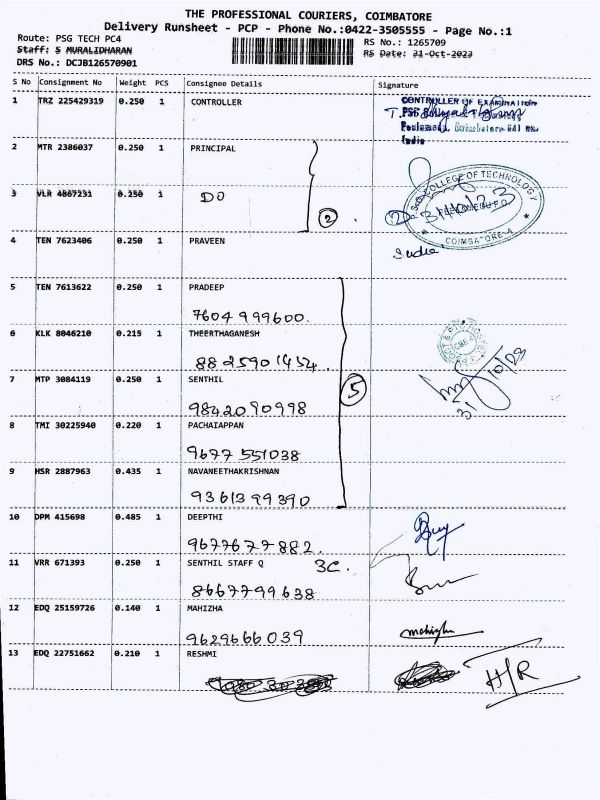 THE PROFESSIONAL COURIERS, COIMBATORE
Delivery Runsheet - PCP - Phone No.:0422-3505555 - Page No.:1
Route: PSG TECH PC4
RS No.: 1265709
Staff: S MURALIDHARAN
RS Date: 31-Oct-2023
DRS No.: DCJB126570901
S No Consignment No Weight PCS Consignee Details Signature
1 TRZ 225429319 0.250 1 CONTROLLER
CONTROLLER OF EXAMINATION
Peelamedu, Coimbatore 641
India
2 MTR 2386037 0.250 1 PRINCIPAL
3 VLR 4867231 0.250 1 DO
2
P.S.G. COLLEGE OF TECHNOLOGY
31/10/23
COIMBATORE-4
4 TEN 7623406 0.250 1 PRAVEEN
5 TEN 7613622 0.250 1 PRADEEP
7604999600.
6 KLK 8046210 0.215 1 THEERTHAGANESH
8825901454.
7 MTP 3084119 0.250 1 SENTHIL
5
31/10/23
9842090998
8 TMI 30225940 0.220 1 PACHAIAPPAN
9677551038
9 HSR 2887963 0.435 1 NAVANEETHAKRISHNAN
9361399390
10 DPM 415698 0.485 1 DEEPTHI
9677677882.
11 VRR 671393 0.250 1 SENTHIL STAFF Q 3C.
8667799638
12 EDQ 25159726 0.140 1 MAHIZHA
9629666039
13 EDQ 22751662 0.210 1 RESHMI
H/R